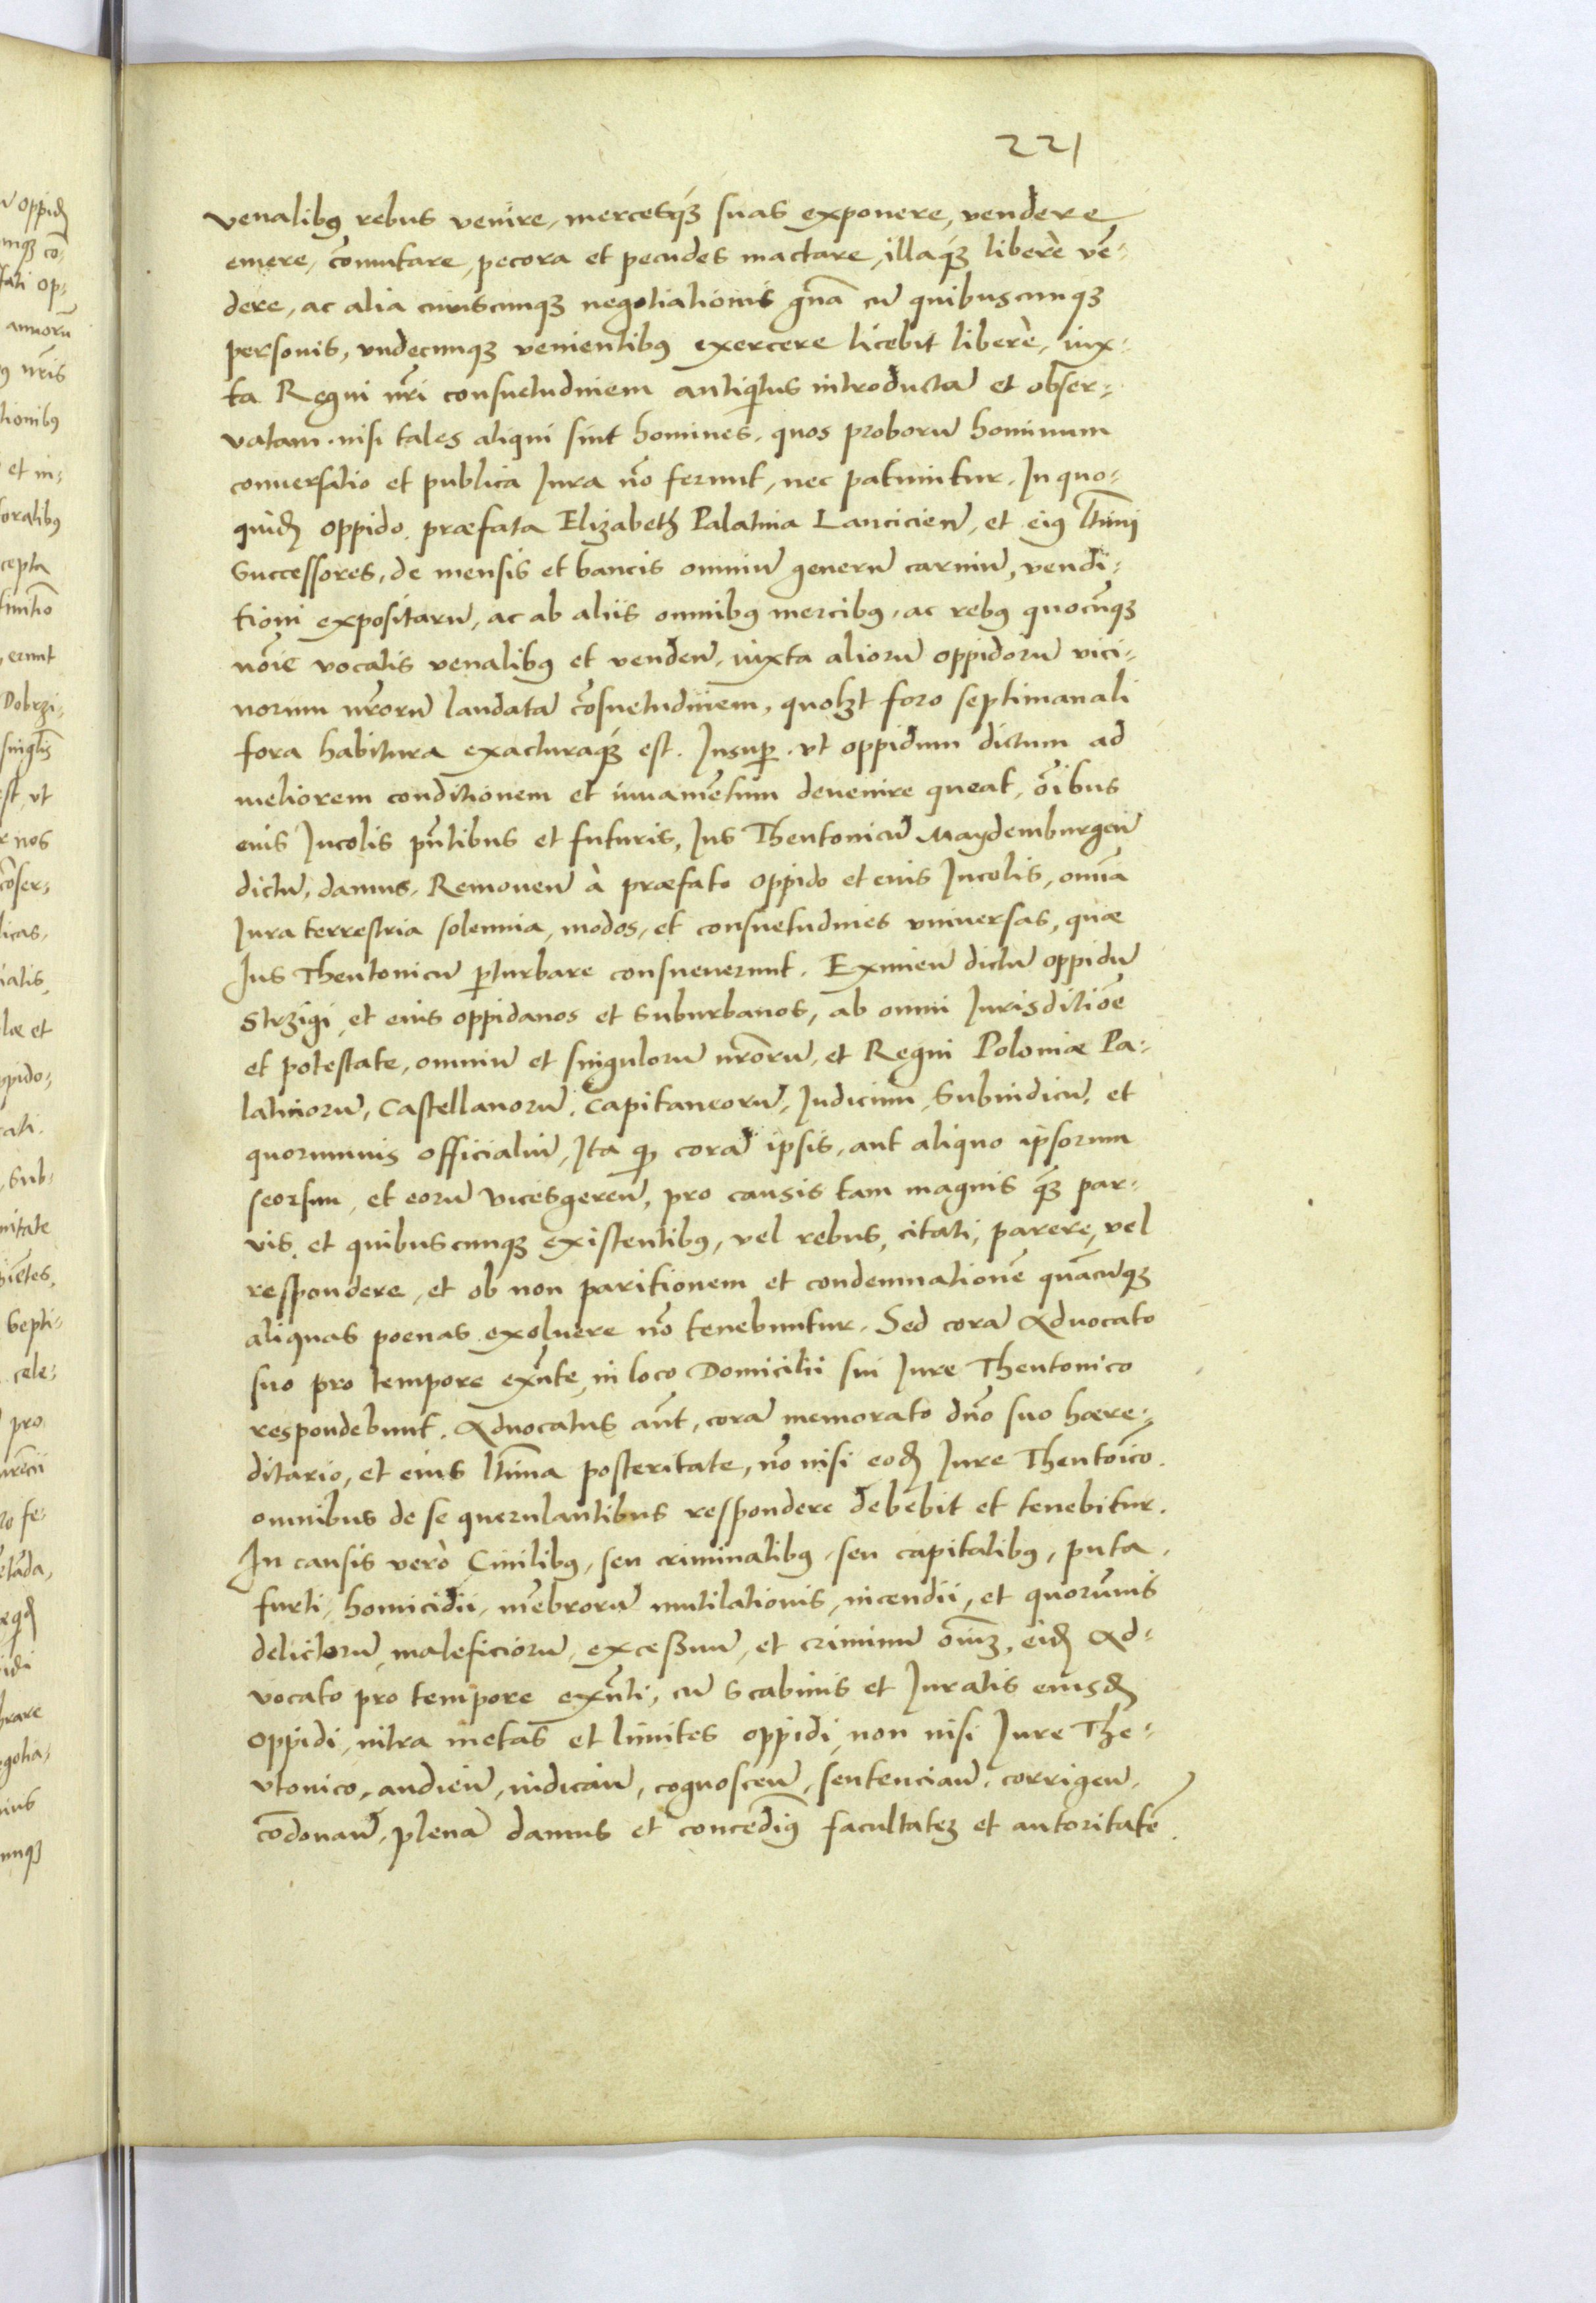 221
venalibꝰ rebus venire, mercesqꝫ suas exponere, vendere
emere, com̄utare, pecora et pecudes mactare, illaqꝫ liberè vē-
dere, ac alia cuiuscunqꝫ negotiationis gn̄a cū quibuscunqꝫ
personis, vndecunqꝫ venientibꝰ exercere licebit liberè, iux-
ta Regni nr̄i consuetudinem antiqitus introductā et obser-
vatam. nisi tales aliqui sint homines, quos proborū hominum
conuersatio et publica Jura nō ferunt, nec patiuntur. In quo-
quidē oppido præfata Elizabeth Palatina Lancicien̄, et eiꝰ ltīmi
Successores, de mensis et bancis omniū generū carniū, vendi-
tioni expositarū, ac ab aliis omnibꝰ mercibꝰ, ac rebꝰ quocūqꝫ
nōie vocatis venalibꝰ et venden̄, iuxta aliorū oppidorū vici-
norum nr̄orū laudatā cōsuetudinem, quolꝫt foro septimanali
fora habitura exacturaqꝫ est. Insuꝑ. vt oppidum dictum ad
meliorem conditionem et iuuamētum deuenire queat, oībus
eius Incolis pn̄tibus et futuris, Jus Theutonicū Maydemburgen̄
dictū, damus. Remouen̄ à præfato oppido et eius Incolis, omīa
Jura terrestria solennia, modos, et consuetudines vniuersas, quæ
Jus Theutonicū ꝑturbare consueuerunt. Eximen̄ dictū oppidū
Strzigi, et eius oppidanos et suburbanos, ab omni Jurisditiōe
et potestate, omniū et singulorū nr̄orū, et Regni Poloniæ Pa-
latinorū, Castellanorū, Capitaneorū, Judicum, Subiudicū, et
quorumuis officialiū, Ita ꝙ corā ipsis, aut aliquo ipsorum
seorsim, et eorū vicesgeren̄, pro causis tam magnis qꝫ par-
vis, et quibuscunqꝫ existentibꝰ, vel rebus, citati, parere, vel
respondere, et ob non paritionem et condemnationē quācūqꝫ
aliquas poenas exoluere nō tenebuntur. Sed corā Aduocato
suo pro tempore exn̄te, in loco Domicilii sui Jure Theutonico
respondebunt. Aduocatus aūt, corā memorato dn̄o suo hære-
ditario, et eius ltīma posteritate, nō nisi eodē Jure Theutoīco.
omnibus de se querulantibus respondere debebit et tenebitur.
In causis verò Ciuilibꝰ, seu criminalibꝰ, seu capitalibꝰ, puta,
furti, homicidii, mēbrorū mutilationis, incendii, et quorūuis
delictorū, maleficiorū, excessuū, et criminū oīuꝫ, eidē Ad-
vocato pro tempore exn̄ti, cū Scabinis et Juratis eiusdē
oppidi, intra metas et limites oppidi, non nisi Jure The-
vtonico, audien̄, iudican̄, cognoscen̄, sentencian̄, corrigen̄,
cōdonan̄, plenā damus et concedimꝰ facultatē et autoritatē